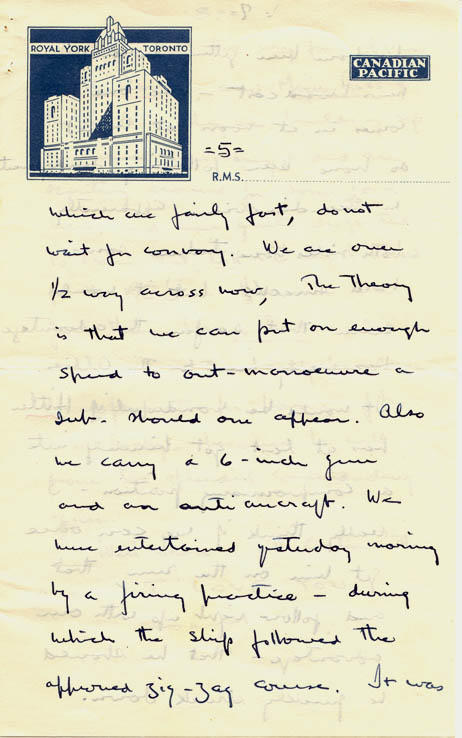 ROYAL YORK TORONTO
CANADIAN
PACIFIC
=5=
R.M.S.
which are fairly fast, do not
wait for convoy. We are over
1/2 way across now, The Theory
is that we can put on enough
speed to out-manoeuvre a
sub- should one appear. Also
we carry a 6-inch gun
and an anti aircraft. We
were entertained yesterday morning
by a firing practice – during
which the ship followed the
approved zig-zag course. It was